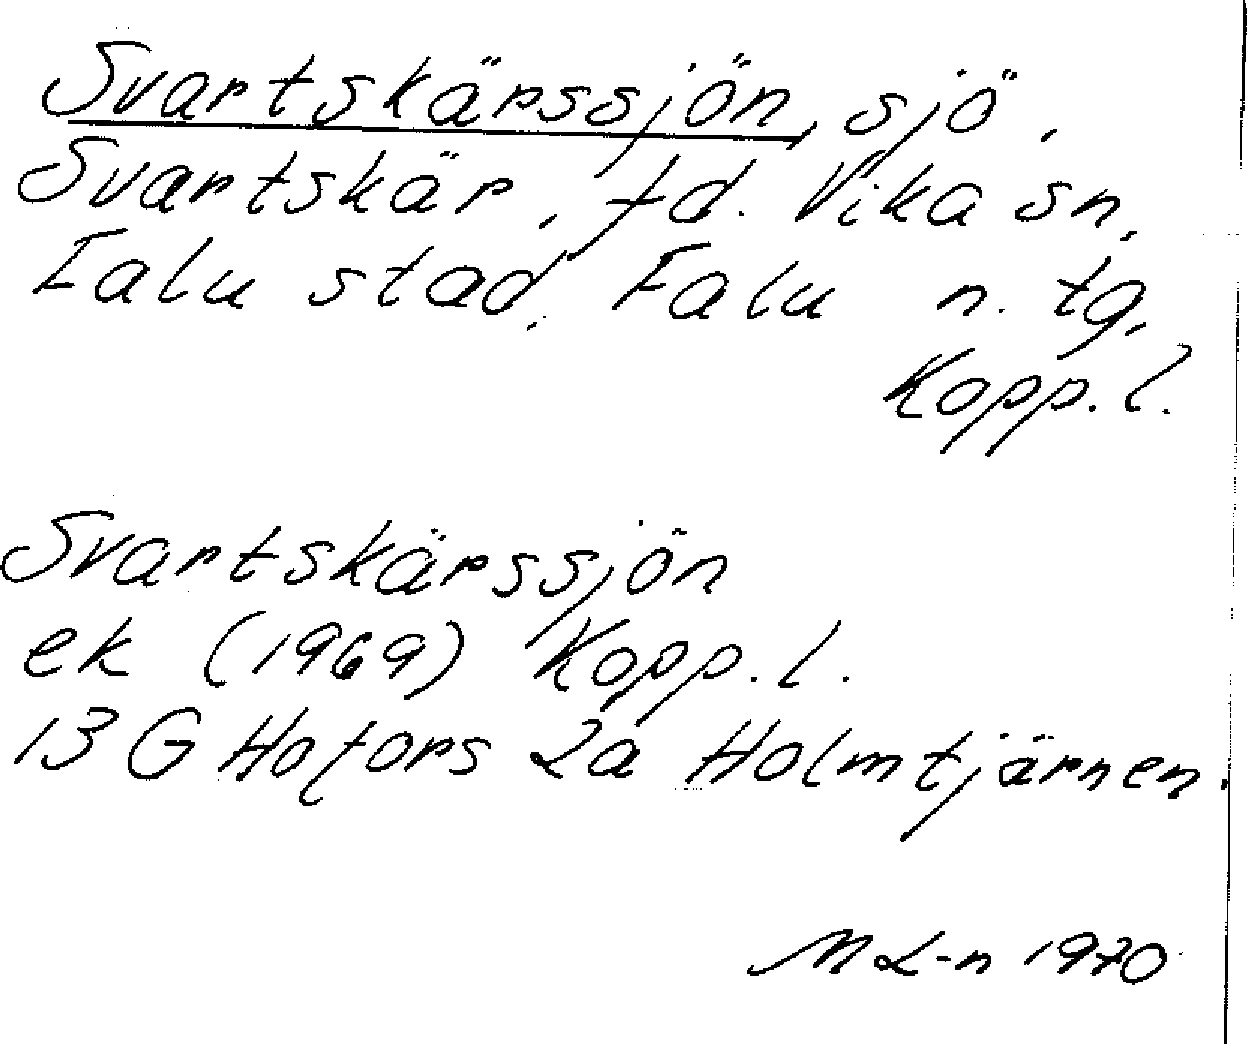 Svartskärssjön, sjö,
Svartskär, fd. Vika sn,
Falu stad, Falu n. tg,
Kopp. l.
Svartskärssjön
ek (1969) Kopp. l.
13 G Hofors 2a Holmtjärnen.
M L-n 1970